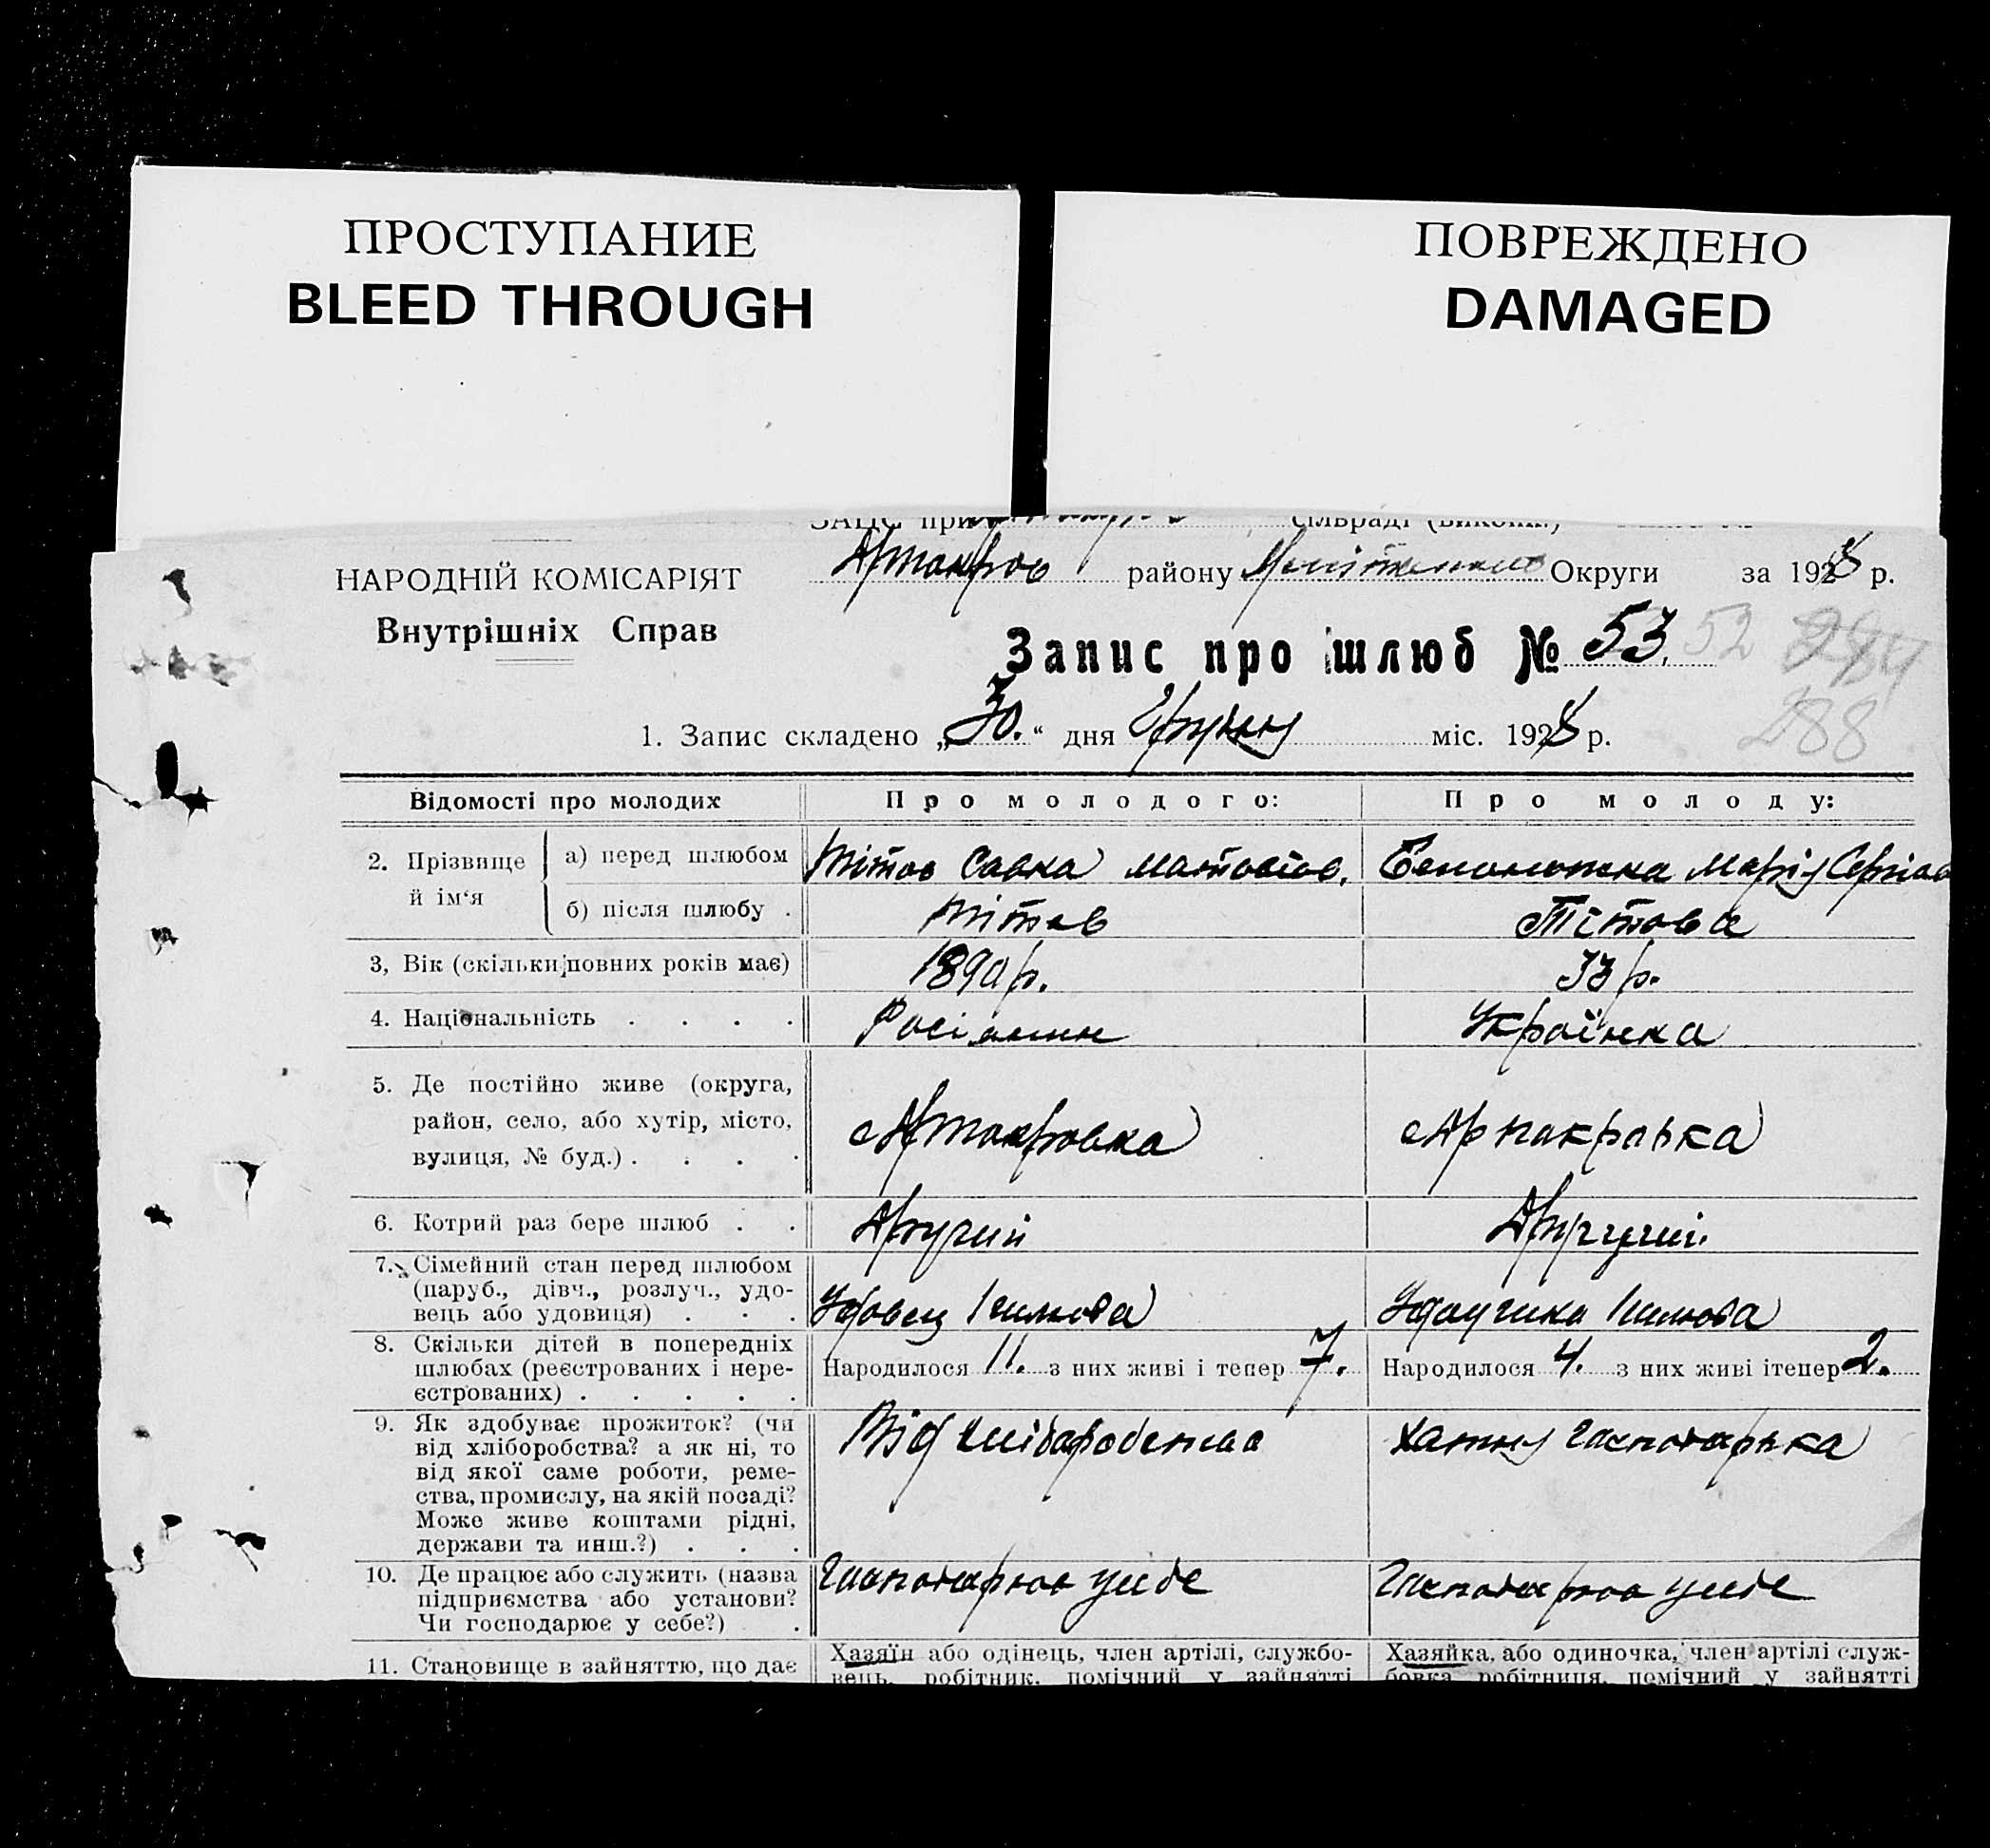 ПРОСТУПАНИЕ
BLEED THROUGH
ПОВРЕЖДЕНО
DAMAGED
ЗАЦС при сільраді
НАРОДНІЙ КОМІСАРІЯТ
Внутрішніх Справ
району Округи за 1928 р.
Запис про шлюб № 53. 52 284
288
1. Запис складено „30.“ дня Грудня міс. 1928 р.
Відомості про молодих Про молодого: Про молоду:
2. Прізвище й ім‘я
а) перед шлюбом Тітов Савка Марія
б) після шлюбу . Тітов Тітова
3, Вік (скільки повних років має) 1890 р. 33 р.
4. Національність . . . . Росіянин Українка
5. Де постійно живе (округа,
район, село, або хутір, місто,
вулиця, № буд.) . . . .
6. Котрий раз бере шлюб . . Другий Другий.
7. Сімейний стан перед шлюбом
(паруб., дівч., розлуч., удо-
вець або удовиця) . . . Удовец
8. Скільки дітей в попередніх
шлюбах (реєстрованих і нере-
єстрованих) . . . . .
Народилося 11. з них живі і тепер 7.
Народилося 4. з них живі ітепер 2.
9. Як здобуває прожиток? (чи
від хліборобства? а як ні, то
від якої саме роботи, реме-
ства, промислу, на якій посаді?
Може живе коштами рідні,
держави та инш.?) . . .
Від хліборобства
10. Де працює або служить (назва
підприємства або установи?
Чи господарює у себе?) .
11. Становище в зайняттю, що дає
Хазяїн або одінець, член артілі, службо-
вець, робітник, помічний у зайнятті
Хазяйка, або одиночка, член артілі служ-
бовка робітниця, помічний у зайнятті